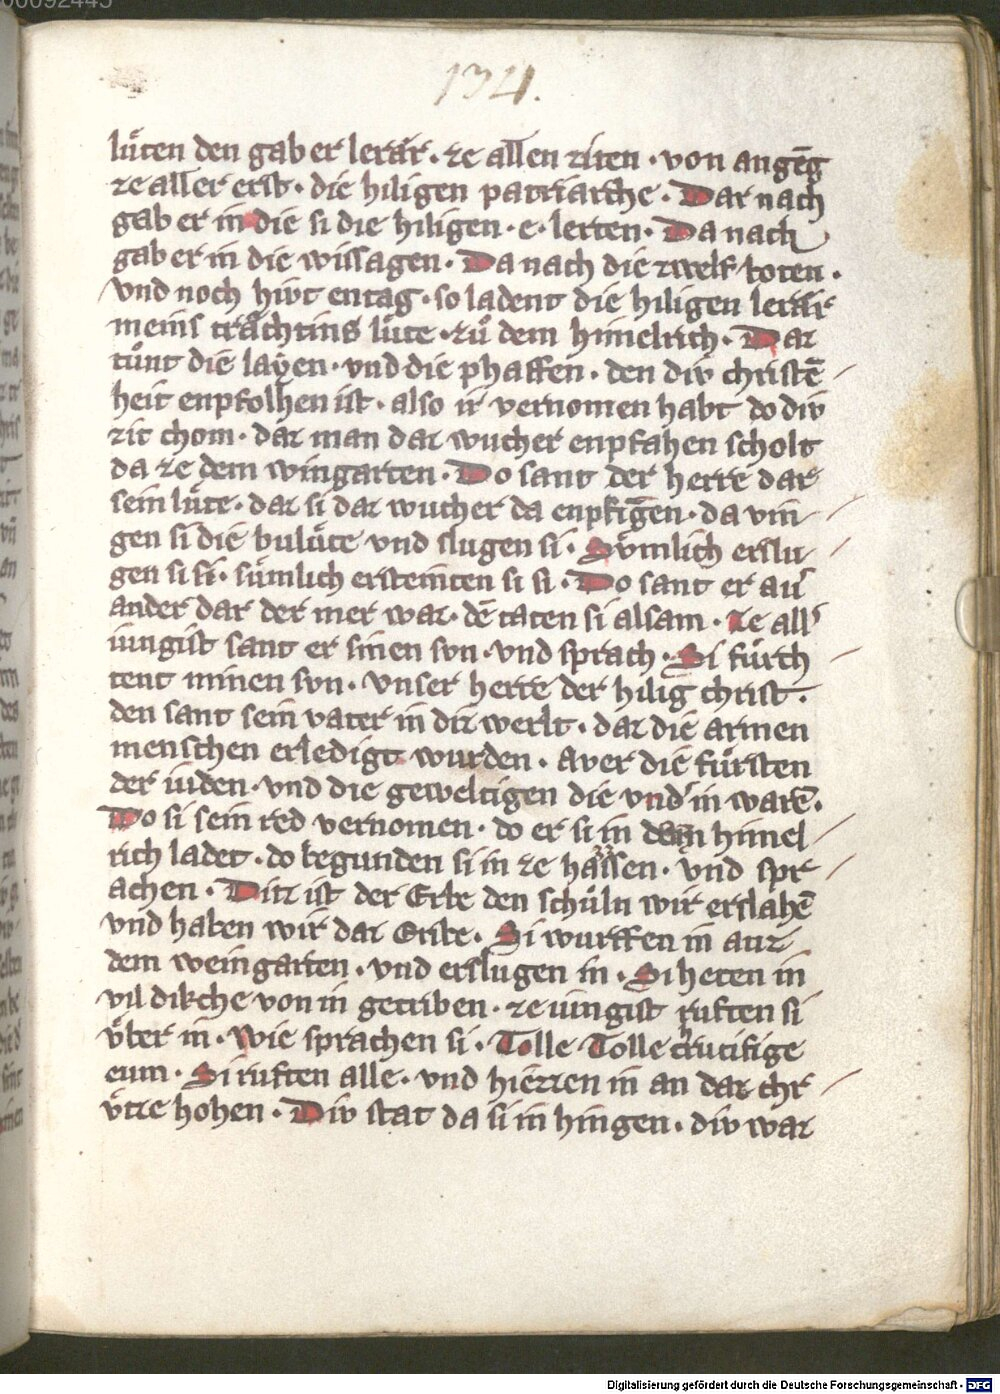 134.
lûten den gab er lerår · ze allen ziten · von angēg
ze aller erst · die hiligen patriarche · Dar nach
gab er in die si die hiligen · e · lerten · Da nach
gab er in die wissagen · Da nach die zwelf boten ·
vnd noch hivt entag · so ladent die hiligen lerår
meins tråchtins lûte · zů dem himelrich · Daz
tůnt die layen · vnd die phaffen · den div christē
heit enpfolhen ist · also ir vernomen habt do div
zit chom · daz man daz wucher enpfahen scholt
da ze dem wingarten · Do sant der herre dar
sein lůte · daz si daz wucher da enpfigēn · da vin
gen si die bulůte vnd slugen si · Sůmlich erslu
gen si si · sůmlich ersteinten si si · Do sant er au
ander dar der mer war · dē taten si alsam · Ze all
iungist sant er sinen svn · vnd sprach · Si fůrch
tent minen svn · Vnser herre der hilig christ ·
den sant sein vater in dir werlt · daz die armen
menschen erledigt wurden · Aver die fůrsten
der iuden · vnd die geweltigen die vnd in warē ·
Do si sein red vernomen · do er si in himel
rich ladet · do begunden si in ze hassen · vnd spr
achen · Ditz ist der Erbe den schůln wir erslahē
vnd haben wir daz Erbe · Si wurffen in auz
dem weingarten · vnd erslugen in · Si heten in
vil dikche von in getriben · ze iungist ruften si
v̊ber in · Wie sprachen si · Tolle Tolle crucifige
eum · Si ruften alle · vnd hiezzen in an daz chr
v̊tze hohen · Div stat da si in hingen · div waz
Digitalisierung gefördert durch die Deutsche Forschungsgemeinschaft - DFG